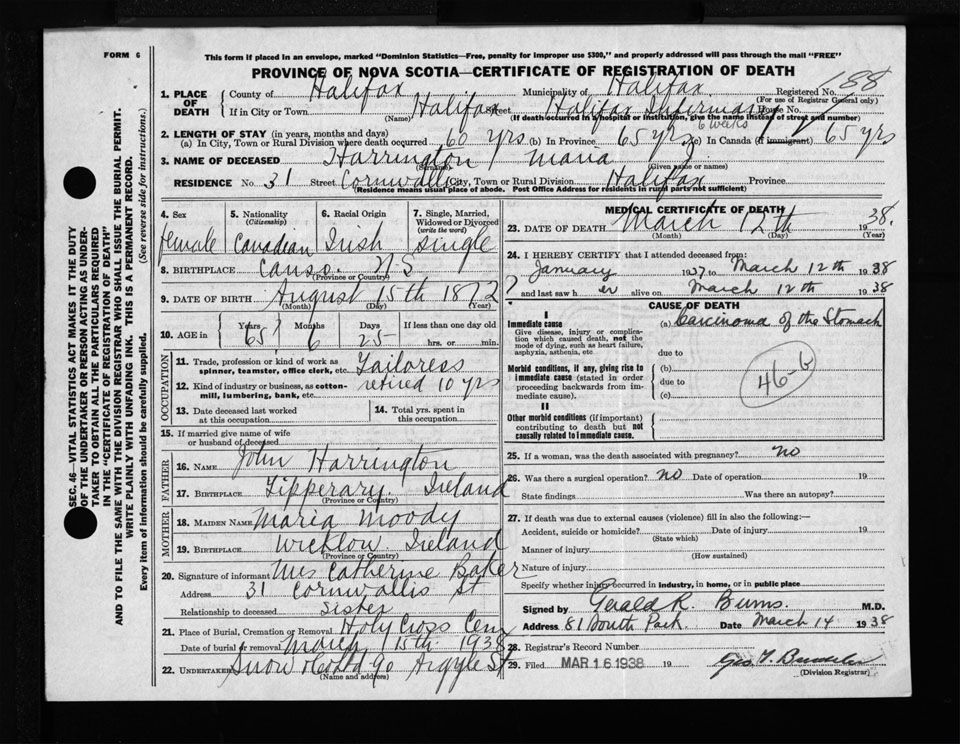 FORM 6
This form if placed in an envelope, marked "Dominion Statistics—Free, penalty for improper use $300," and properly addressed will pass through the mail "FREE"
PROVINCE OF NOVA SCOTIA—CERTIFICATE OF REGISTRATION OF DEATH
SEC. 46—VITAL STATISTICS ACT MAKES IT THE DUTY
OF THE UNDERTAKER OR PERSON ACTING AS UNDER-
TAKER TO OBTAIN ALL THE PARTICULARS REQUIRED
IN THE "CERTIFICATE OF REGISTRATION OF DEATH"
AND TO FILE THE SAME WITH THE DIVISION REGISTRAR WHO SHALL ISSUE THE BURIAL PERMIT.
WRITE PLAINLY WITH UNFADING INK. THIS IS A PERMANENT RECORD.
Every item of information should be carefully supplied. (See reverse side for instructions.)
1. PLACE OF DEATH County of Halifax Municipality of Halifax Registered No. 188
(For use of Registrar General only)
If in City or Town Halifax Street Halifax Infirmary House No.
(Name) (If death occurred in a hospital or institution, give the name instead of street and number)
6 weeks
2. LENGTH OF STAY (in years, months and days)
(a) In City, Town or Rural Division where death occurred 60 yrs (b) In Province 65 yrs (c) In Canada (if immigrant) 65 yrs
3. NAME OF DECEASED Harrington Maria
(Surname) (Given name or names)
RESIDENCE No. 31 Street Cornwallis City, Town or Rural Division Halifax Province
(Residence means usual place of abode. Post Office Address for residents in rural parts not sufficient)
4. Sex female
5. Nationality (Citizenship) Canadian
6. Racial Origin Irish
7. Single, Married, Widowed or Divorced (write the word) single
8. BIRTHPLACE Canso. N S
(Province or Country)
9. DATE OF BIRTH August 15th 1872
(Month) (Day) (Year)
10. AGE in Years 65 Months 6 Days 25 If less than one day old hrs. or min.
OCCUPATION
11. Trade, profession or kind of work as spinner, teamster, office clerk, etc. Tailoress
12. Kind of industry or business, as cotton-mill, lumbering, bank, etc. retired 10 yrs
13. Date deceased last worked at this occupation
14. Total yrs. spent in this occupation
15. If married give name of wife or husband of deceased
FATHER
16. NAME John Harrington
17. BIRTHPLACE Tipperary. Ireland
(Province or Country)
MOTHER
18. MAIDEN NAME Maria Moody
19. BIRTHPLACE Wicklow. Ireland
(Province or Country)
20. Signature of informant Mrs Catherine Baker
Address 31 Cornwallis St
Relationship to deceased sister
21. Place of Burial, Cremation or Removal Holy Cross Cem
Date of burial or removal March 15th 1938
22. UNDERTAKER Snow & Co Ltd 90 Argyle St
(Name and address)
MEDICAL CERTIFICATE OF DEATH
23. DATE OF DEATH March 12th 1938.
(Month) (Day) (Year)
24. I HEREBY CERTIFY that I attended deceased from:
January 1937 to March 12th 1938
and last saw h er alive on March 12th 1938
CAUSE OF DEATH
I
Immediate cause
Give disease, injury or complica-
tion which caused death, not the
mode of dying, such as heart failure,
asphyxia, asthenia, etc
(a) Carcinoma of the Stomach
due to
Morbid conditions, if any, giving rise to
immediate cause (stated in order
proceeding backwards from im-
mediate cause).
(b)
due to
(c)
46-b
II
Other morbid conditions (if important)
contributing to death but not
causally related to immediate cause.
25. If a woman, was the death associated with pregnancy? no
26. Was there a surgical operation? no Date of operation 19
State findings Was there an autopsy?
27. If death was due to external causes (violence) fill in also the following:—
Accident, suicide or homicide? Date of injury 19
(State which)
Manner of injury
(How sustained)
Nature of injury
Specify whether injury occurred in industry, in home, or in public place
Signed by Gerald R. Burns. M.D.
Address 81 South Park. Date March 14 1938
28. Registrar's Record Number
29. Filed MAR 16 1938 19
(Division Registrar)